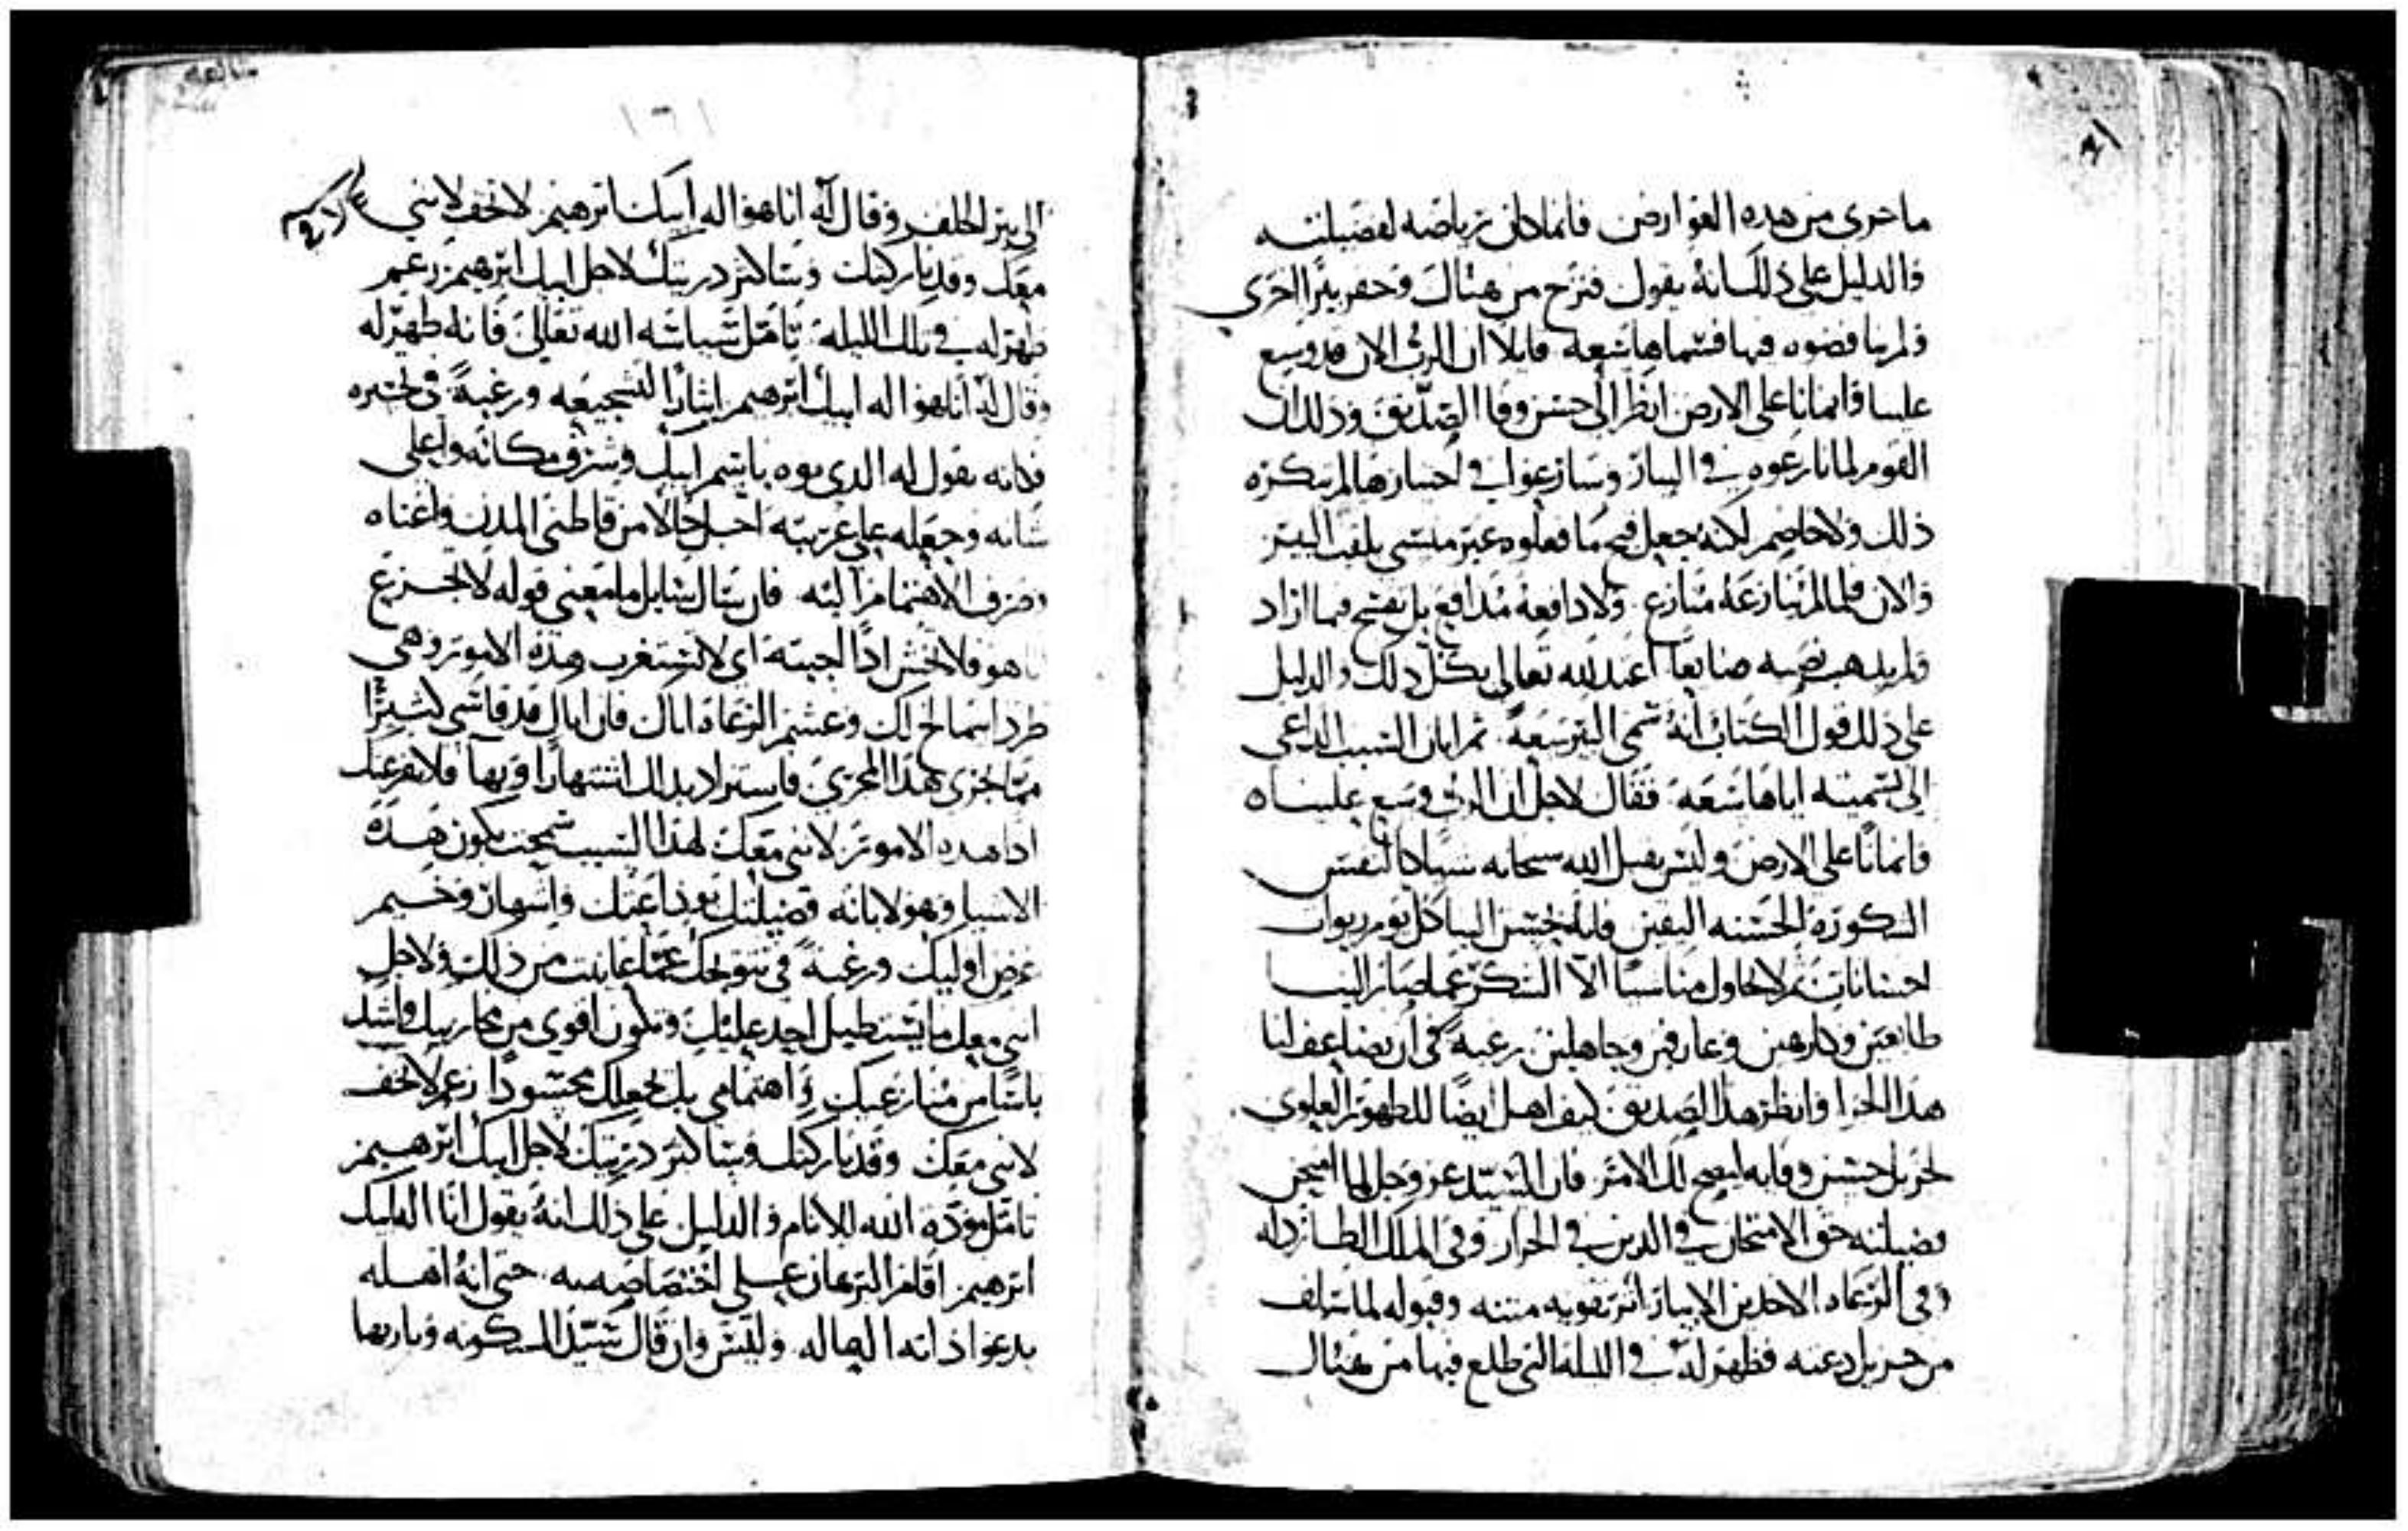 ما جرى من هذه العوارض فانما كان برياضه لفضيلته
والدليل على ذلك انه يقول فنزح من هناك وحفر بئرا اخرى
ولم يناقضوه فيها فسماها سعة قايلا ان الرب الان قد وسع
علينا وانمانا على الارض انظر الى حسن وفا الصديق وذلك ان
القوم لما نازعوه في البيار وسارعوا في احتيازها لم ينكره
ذلك ولا خاصم لكنه جعل قبح ما فعلوه غير منسى بلقب البير
والان فلما لم ينازعه منازع ولا دافعه مدافع بل تفسح فيما اراد
ولم يذهب نصبه ضايعا اعتد لله تعالى بكل ذلك والدليل
على ذلك قول الكتاب انه سمى البير سعة ثم ابان السبب الداعى
الى تسميته اياها سعة فقال لاجل ان الرب وسع علينا
وانمانا على الارض وليس يغفل الله سبحانه نسيانا لنفس
الشكورة الحسنه اليقين فانه يحسن الينا كل يوم ربوات
احسانات ثم لا يحاول منا سببا الا الشكر عما صار الينا
طايعين وكارهين وعارفين وجاهلين رغبة في ان يضاعف لنا
هذا الجزا وانظر هذا الصديق كيف اهل ايضا للظهور العلوى
لجزيل حسن وفايه ليصح لك الامر فان السيد عز وجل لما امتحن
فضيلته حق الامتحان في الذين في الجرار وفى الملك الطارد له
وفى الرعاه الاخذين الابيار اثر تقويه متنه وقبوله لما سلف
من جزيل دعته فظهر له في الليلة التى طلع فيها من هناك
١٦١
الى بير الحلف وقال له انا هو اله ابيك ابرهيم لا تخف لانني
معك وقد باركتك وساكثر ذريتك لاجل ابيك ابرهيم زعم
ظهر له في تلك الليلة تامل سياسة الله تعالى فانه ظهر له
وقال له انا هو اله ابيك ابرهيم ايثارا لتشجيعه ورغبة في تخبيره
فكانه يقول له الذى نوه باسم ابيك وشرف مكانه واعلى
شانه وجعله على غربته اجل حالا من قاطنى المدن واغناه
وصرف الاهتمام اليه فان سال سايل ما معنى قوله لا تجزع
ما هو فلا تخش اذا اجبته اى لا تستغرب هذه الامور وهي
طرد ابيمالخ لك وعشم الرعاة اياك فان اباك قد قاسى كثيرا
مما يجرى هذا المجرى فاستزاد بذلك اشتهارا وبها فلا يفزعنك
اذا هذه الامور لانى معك لهذا السبب سمحت بكون هذه
الاشيا وهولا بانه فضيلتك تودا عنك واشهار وخيم
غرض اوليك ورغبة في تتويجك عما عاينت من ذلك ولاجل
انى معك ما يستطيل احد عليك وتكون اقوى من محاربيك واشد
باسا من منازعيك واهتمامى بك يجعلك محسودا زعم لا تخف
لانى معك وقد باركتك وساكثر ذريتك لاجل ابيك ابرهيم
تامل مودة الله للانام والدليل على ذلك انه يقول انا المليك
ابرهيم اقام البرهان على اختصاصه به حتى انه اهله
يدعوا ذاته الها له وليس وان قال سيد المسكونه وباريها